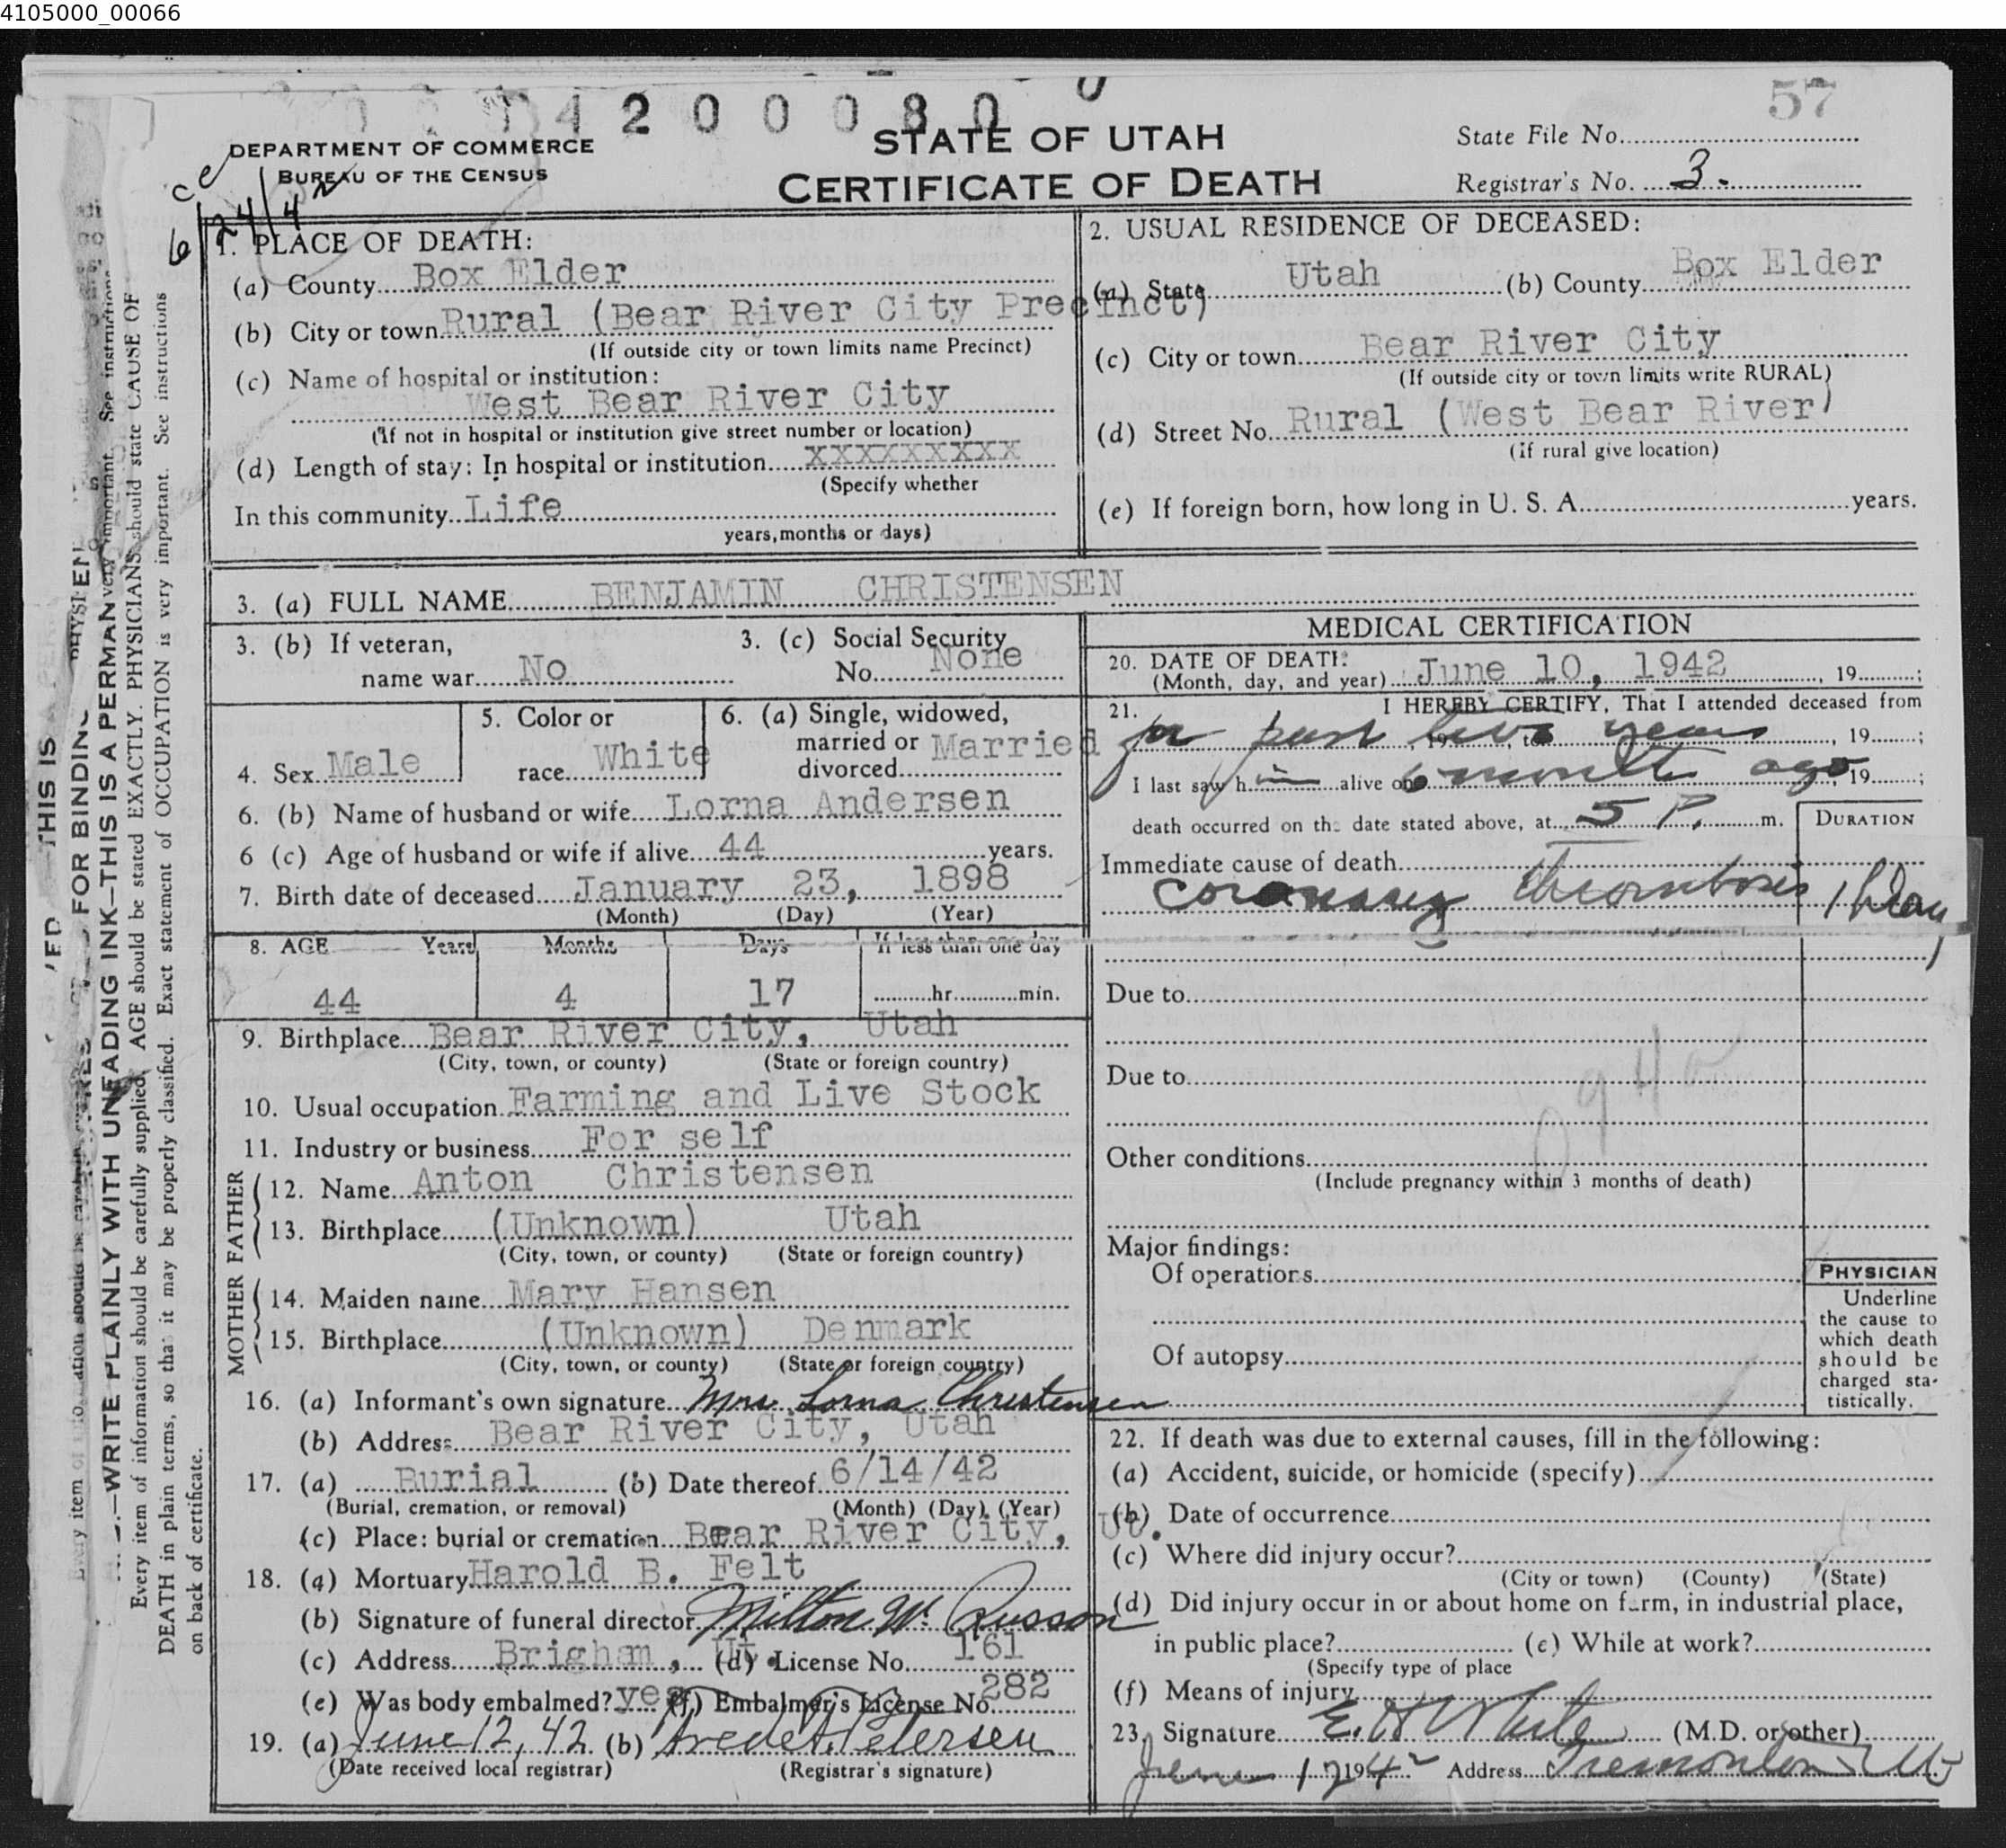 4105000_00066
4 2 0 0 0 8 0 0
57
DEPARTMENT OF COMMERCE
BUREAU OF THE CENSUS
STATE OF UTAH
CERTIFICATE OF DEATH
State File No.
Registrar's No. 3.
6/24/42
1. PLACE OF DEATH:
(a) County Box Elder
(b) City or town Rural (Bear River City Precinct)
(If outside city or town limits name Precinct)
(c) Name of hospital or institution:
West Bear River City
(If not in hospital or institution give street number or location)
(d) Length of stay: In hospital or institution XXXXXXXXX
(Specify whether
In this community Life
years, months or days)
2. USUAL RESIDENCE OF DECEASED:
(a) State Utah (b) County Box Elder
(c) City or town Bear River City
(If outside city or town limits write RURAL)
(d) Street No. Rural (West Bear River)
(if rural give location)
(e) If foreign born, how long in U. S. A. years.
3. (a) FULL NAME BENJAMIN CHRISTENSEN
3. (b) If veteran,
name war No
3. (c) Social Security
No. None
4. Sex Male
5. Color or
race White
6. (a) Single, widowed,
married or
divorced Married
6. (b) Name of husband or wife Lorna Andersen
6 (c) Age of husband or wife if alive 44 years.
7. Birth date of deceased January 23, 1898
(Month) (Day) (Year)
8. AGE Years Months Days If less than one day
44 4 17 hr. min.
9. Birthplace Bear River City, Utah
(City, town, or county) (State or foreign country)
10. Usual occupation Farming and Live Stock
11. Industry or business For self
FATHER
12. Name Anton Christensen
13. Birthplace (Unknown) Utah
(City, town, or county) (State or foreign country)
MOTHER
14. Maiden name Mary Hansen
15. Birthplace (Unknown) Denmark
(City, town, or county) (State or foreign country)
16. (a) Informant's own signature Mrs. Lorna Christensen
(b) Address Bear River City, Utah
17. (a) Burial (b) Date thereof 6/14/42
(Burial, cremation, or removal) (Month) (Day) (Year)
(c) Place: burial or cremation Bear River City, Ut.
18. (a) Mortuary Harold B. Felt
(b) Signature of funeral director Milton W. Russon
(c) Address Brigham, Ut. (d) License No. 161
(e) Was body embalmed? yes (f) Embalmer's License No. 282
19. (a) June 12, 42 (b) Arvede A. Petersen
(Date received local registrar) (Registrar's signature)
MEDICAL CERTIFICATION
20. DATE OF DEATH:
(Month, day, and year) June 10, 1942, 19 ;
21. I HEREBY CERTIFY, That I attended deceased from
for past two years, 19 , to , 19 ;
I last saw him alive on 6 months ago, 19 ;
death occurred on the date stated above, at 5 P. m.
DURATION
Immediate cause of death
coronary thrombosis 1 Day
Due to
Due to
Other conditions
(Include pregnancy within 3 months of death)
Major findings:
Of operations
Of autopsy
PHYSICIAN
Underline
the cause to
which death
should be
charged sta-
tistically.
22. If death was due to external causes, fill in the following:
(a) Accident, suicide, or homicide (specify)
(b) Date of occurrence
(c) Where did injury occur?
(City or town) (County) (State)
(d) Did injury occur in or about home on farm, in industrial place,
in public place? (e) While at work?
(Specify type of place
(f) Means of injury
23. Signature E. H. White (M.D. or other)
June 12 1942 Address Tremonton Ut
WRITE PLAINLY WITH UNFADING INK—THIS IS A PERMAN
Every item of information should be carefully supplied. AGE should be stated EXACTLY. PHYSICIANS should state CAUSE OF
DEATH in plain terms, so that it may be properly classified. Exact statement of OCCUPATION is very important. See instructions
on back of certificate.